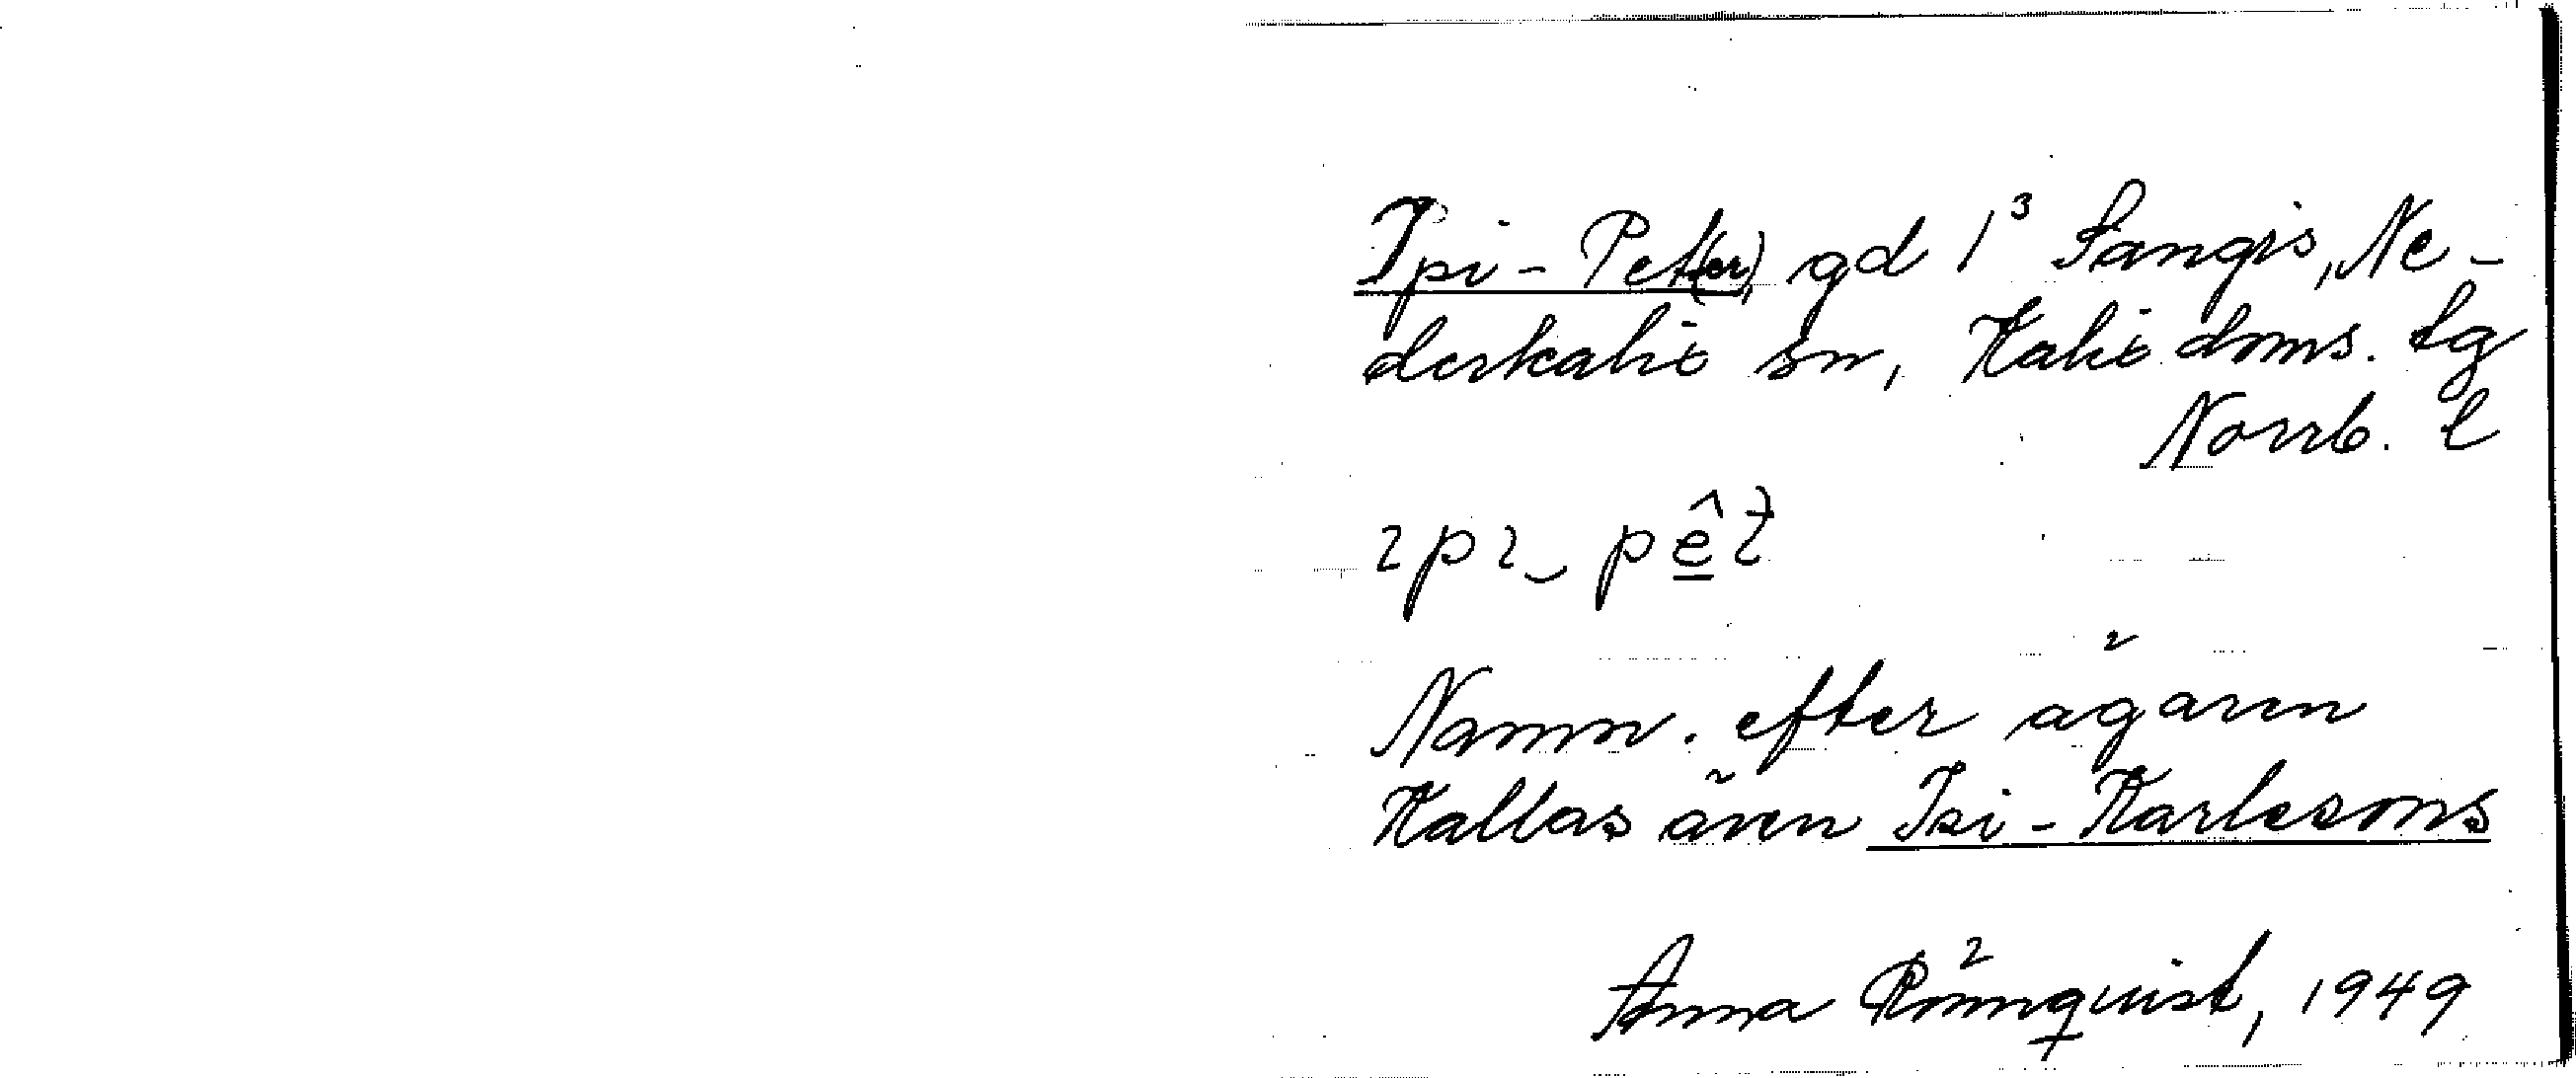 Ipi-Pet(er), gd 1³ Sangis, Ne-
derkalix sn, Kalix doms. tg
Norrb. l
ıpı‿pê̲t
Namn. efter ägaren
Kallas även Isi-Karlesons
Anna Rönnquist, 1949